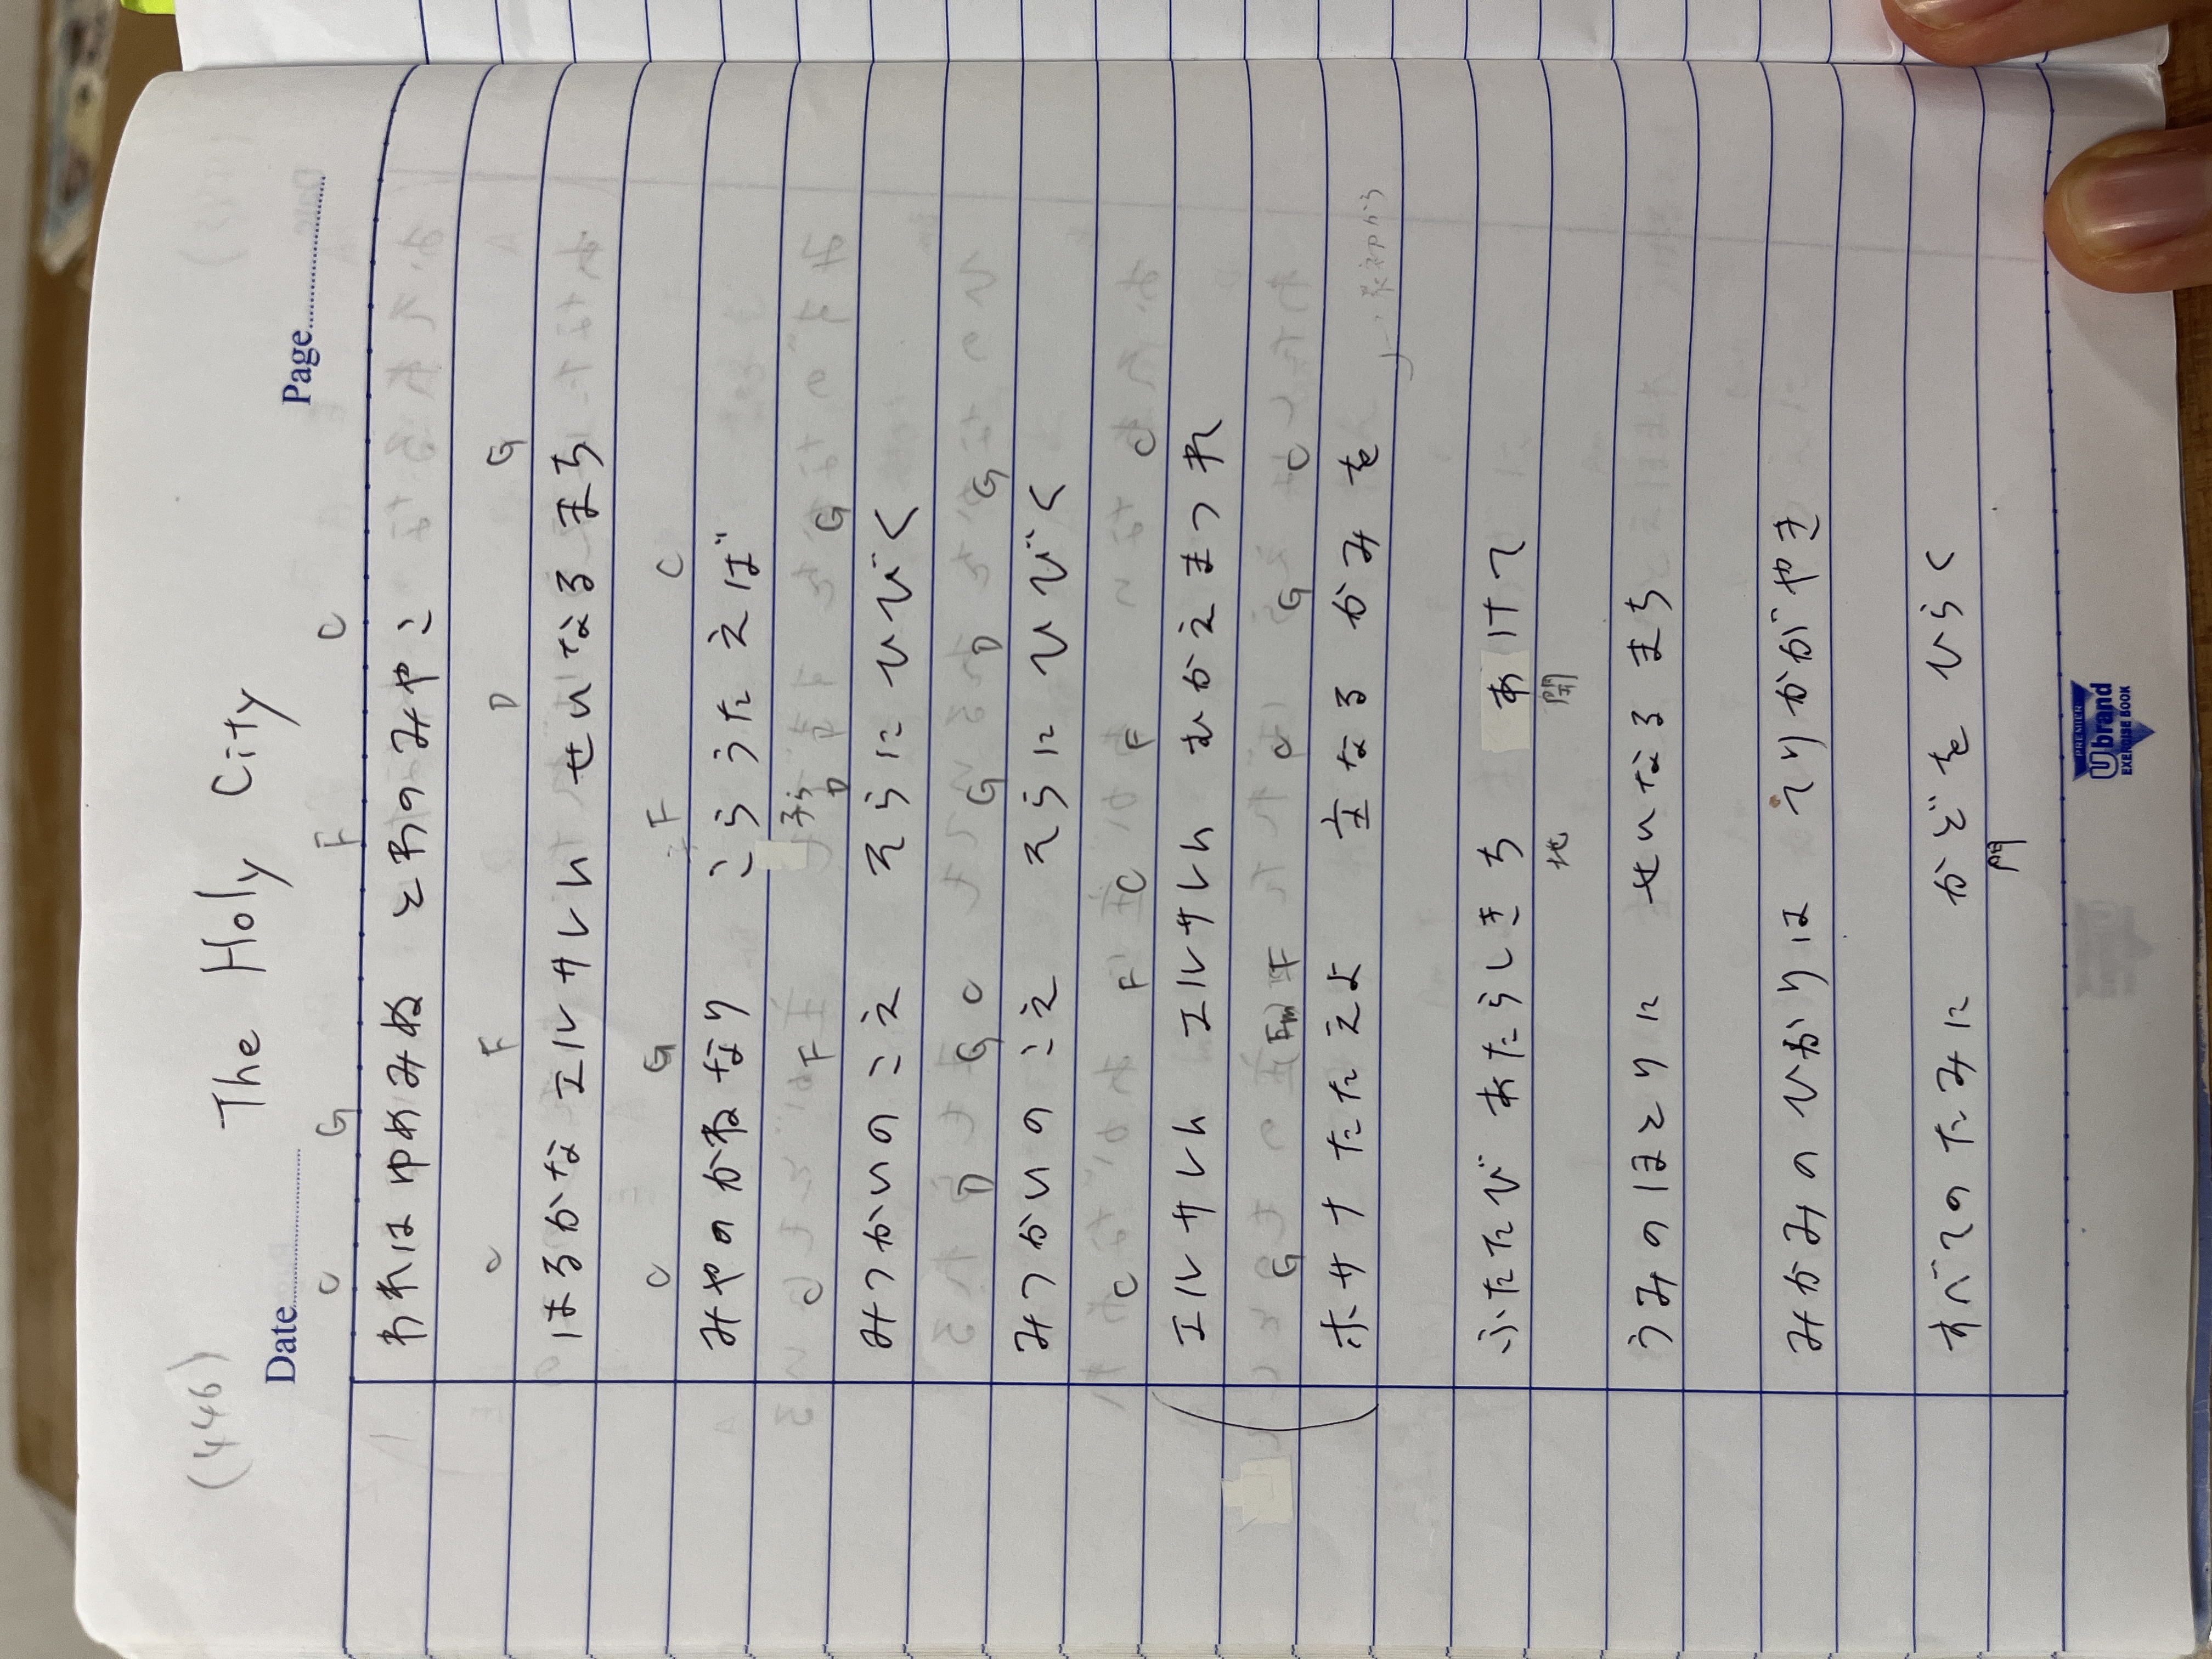 (446) The Holy City
Date Page
C G F C
われはゆめみぬ とわのみやこ
C F D G
はるかな エルサレム せいなるまち
C G F C
みやのかねなり こらうたえば
子ら
C F D G
みつかいのこえ そらにひびく
D G C G D G
みつかいのこえ そらにひびく
C F C F C
エルサレム エルサレム むかえまつれ
G Fm F C G C
ホサナ たたえよ 主なるかみを
最初から
ふたたび あたらしきち あけて
地 開
うみのほとりに せいなるまち
みかみのひかりは てりかがやき
すべてのたみに かどをひらく
門
PREMIER
Ubrand
EXERCISE BOOK